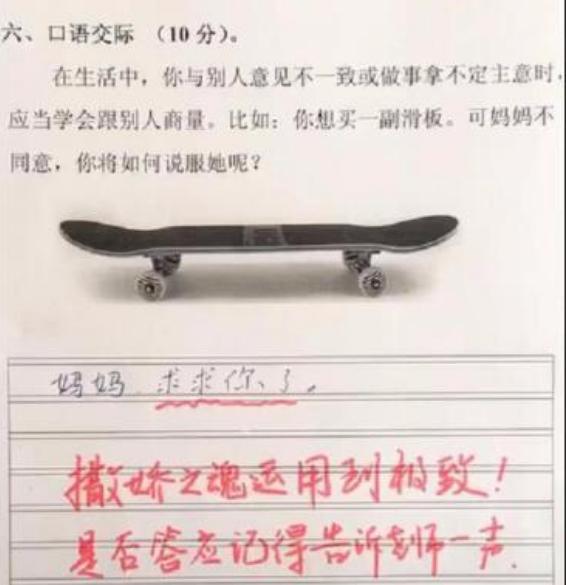 六、口语交际 （10 分）。
在生活中，你与别人意见不一致或做事拿不定主意时，
应当学会跟别人商量。比如：你想买一副滑板。可妈妈不
同意，你将如何说服她呢？
妈妈 求求你了。
撒娇之魂运用到极致！
是否答应记得告诉老师一声.